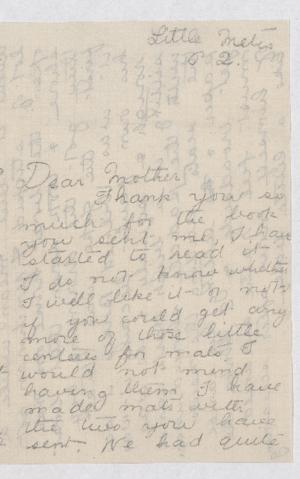 Little Metis
Dear Mother
Thank you so
much for the book
you sent me, I have
started to read it
I do not know whether
I will like it or not
if you could get any
more of those little
centres for mats I
would not mind
having them, I have
made mats with
the two you have
sent. We had quite